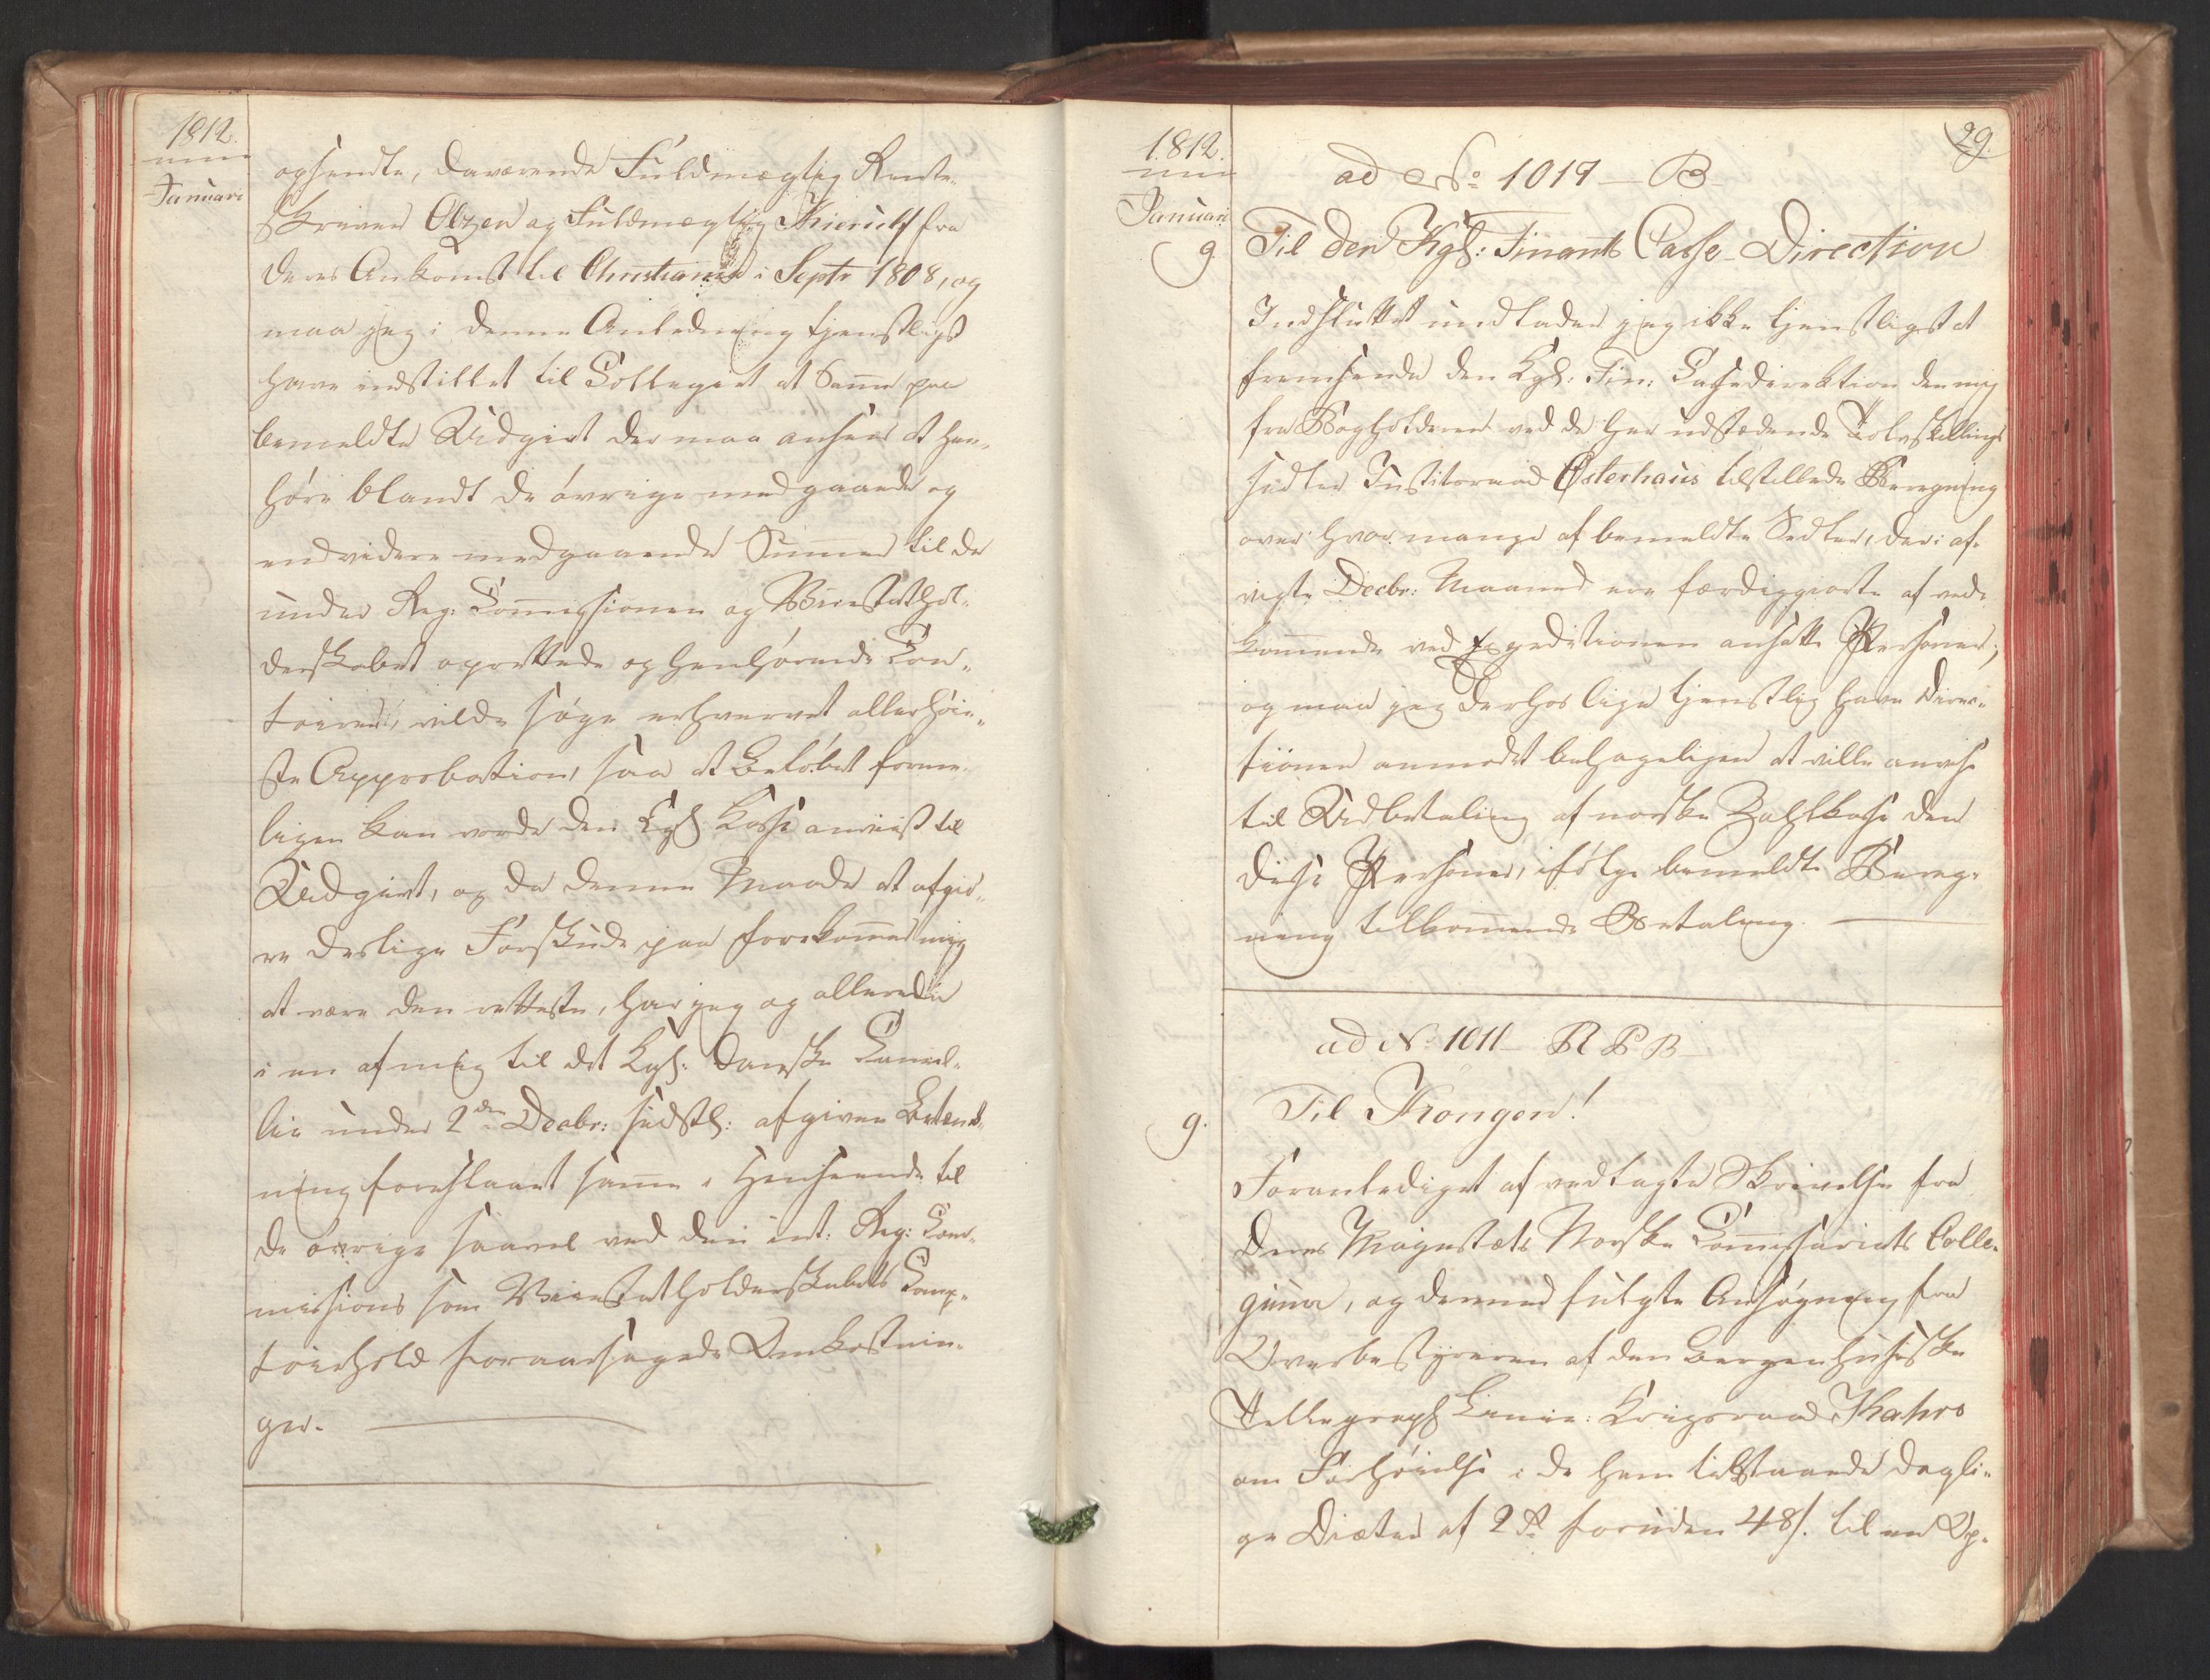 1812.
Januari
opsendte, daværende Fuldmægtig Rente-
skriver Olsen og Fuldmægtig Thierulf fra
deres Ankomst til Christiania i Septr 1808, og
maa jeg i denne Anledning tjenstligst
have indstillet til Collegiet at Samme paa
bemeldte Udgivt der maa ansees at hen-
høre blandt de øvrige medgaaede og
endvidere medgaaende Summer til de
under Reg: Commissionen og Vicestathol-
derskabet oprettede og henhørende Con-
toirer, vilde søge erhvervet allerhøie-
ste Approbation, saa at Beløbet forme-
ligen kan vorde den Kgl: Kasse anviist til
Udgivt, og da denne Maade at afgiø-
re deslige Forskude paa forekommer mig
at være den retteste, har jeg og allerede
i en af mig til det Kgl: danske Cancel-
lie under 2den Decbr: sidstl: afgiven Betænk-
ning foreslaaet samme i Henseende til
de øvrige saavel ved den int. Reg: Com-
missions som Vicestatholderskabets Comp-
toirhold foraarsagede Omkostnin-
ger.
1812.
Januari
29.
ad No 1019 — B
9 Til den Kgl: Finants Casse-Direction
Indsluttet undlader jeg ikke tjenstligst at
fremsende den Kgl: Fin: Cassedirektion den mig
fra Bogholderen ved de her udstædende Tolvskillings
sedler Justitsraad Østerhaus tilstillede Beregning
over hvor mange af bemeldte Sedler, der i af-
vigte Decbr: Maaned ere færdiggjorte af ved-
kommende ved Expeditionen ansatte Personer;
og maa jeg derhos lige tjenstlig have Direc-
tionen anmodet behageligen at ville anvise
til Udbetaling af norske Zahlkasse den
disse Personer, ifølge bemeldte Bereg-
ning tilkommende Betaling.
ad No 1011 — R P B
9. Til Kongen!
Foranlediget af vedlagte Skrivelse fra
Deres Majestæts Norske Commissariats Colle-
gium, og dermed fulgte Ansøgning fra
Overbestyreren af den Bergenhusiske
Tellegraph Linie: Krigsraad Kahrs
om Forhøielse i de ham tilstaaede dagli-
ge Diæter af 2 Rd foruden 48 s. til en Op-